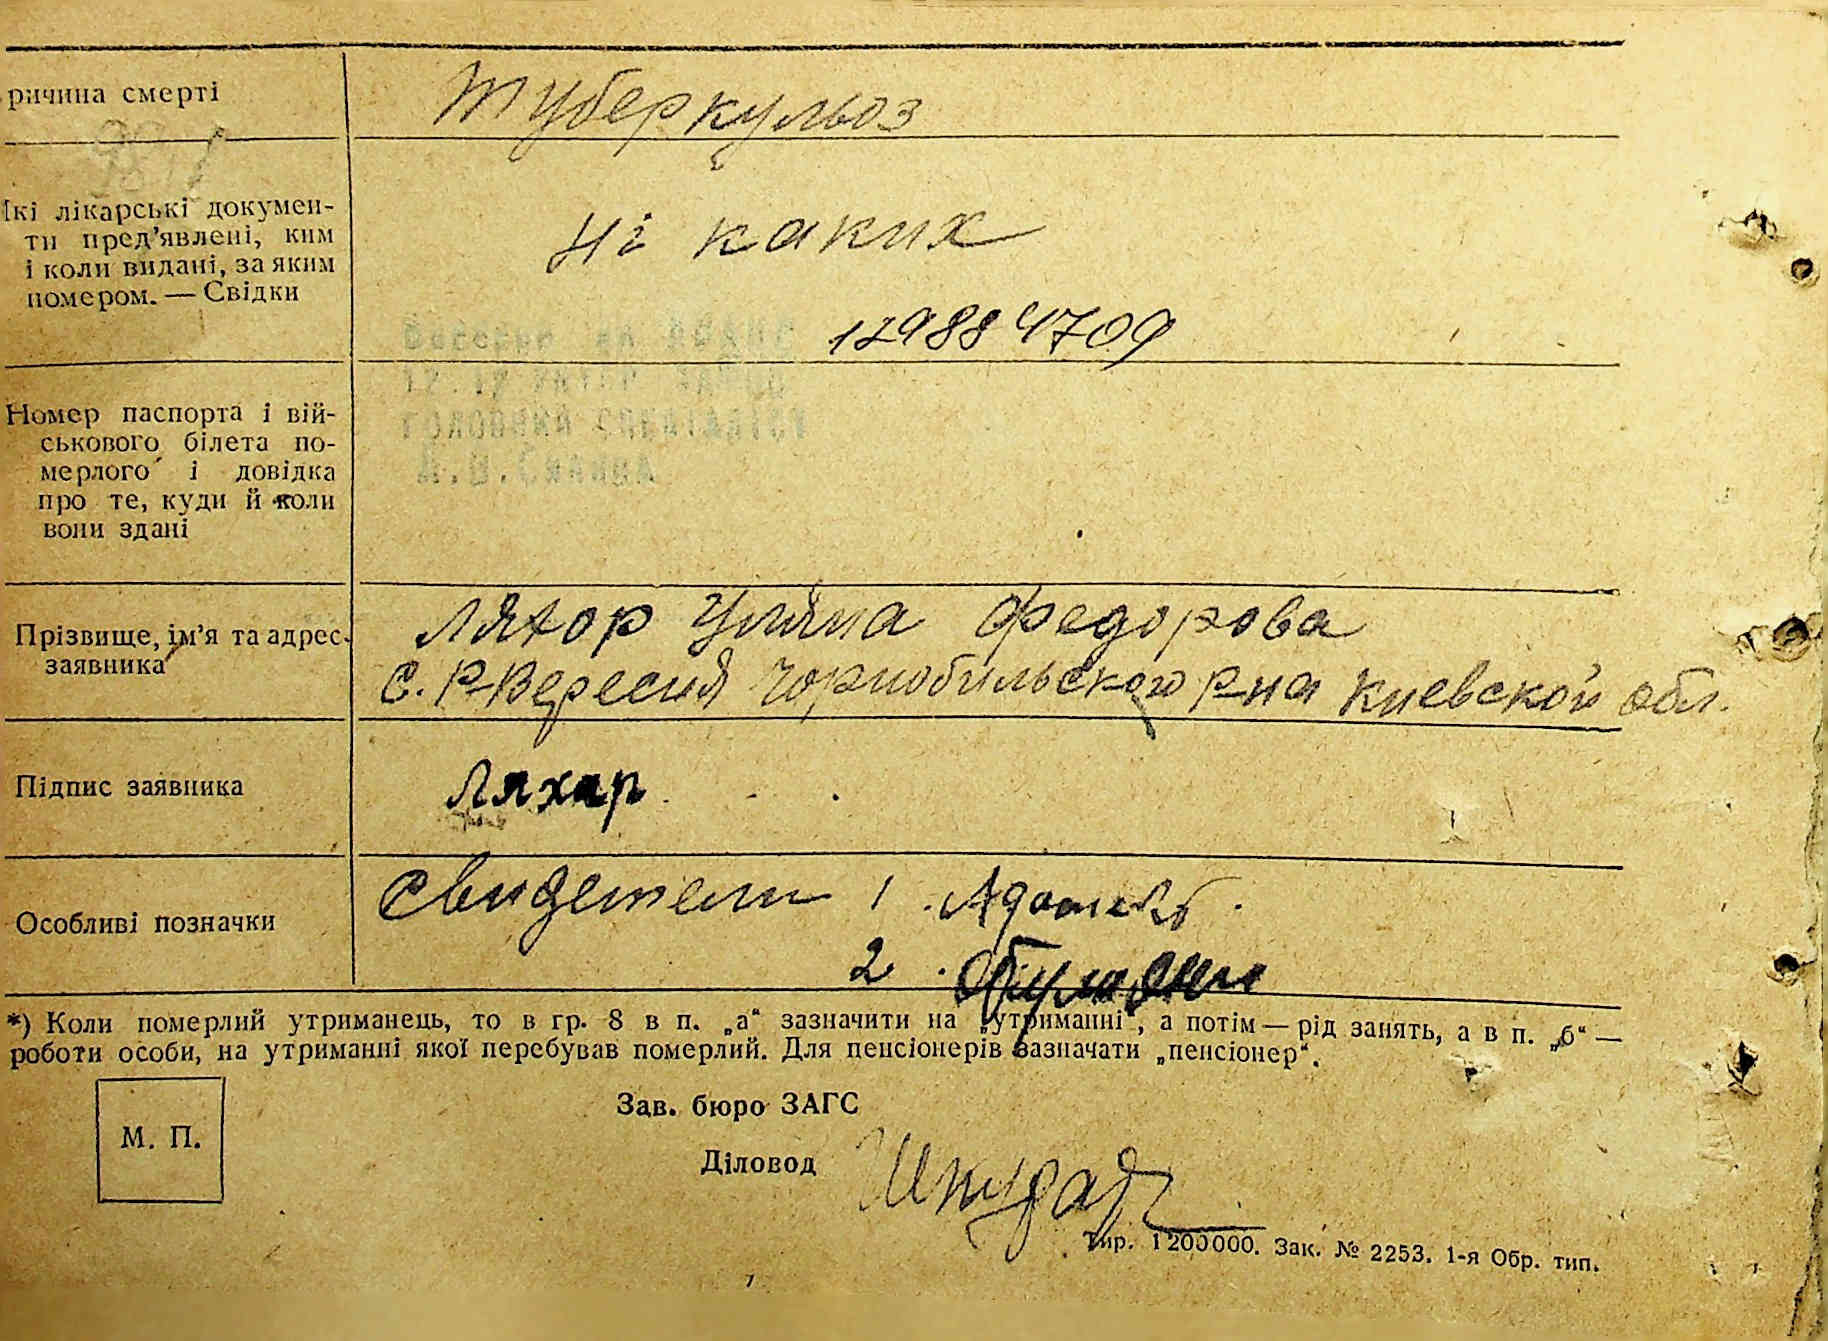 ричина смерті
Туберкульоз
Які лікарські докумен-
ти пред'явлені, ким
і коли видані, за яким
номером. — Свідки
Ні каких
17988 4709
Номер паспорта і вій-
ськового білета по-
мерлого і довідка
про те, куди й коли
вони здані
головний спеціаліст
Прізвище, ім'я та адрес
заявника
Ляхор Уляна Федорова
с. Р-Вересня Чорнобильського р-на Киевской обл.
Підпис заявника
Ляхар
Особливі позначки
Свидетели 1.
2.
*) Коли померлий утриманець, то в гр. 8 в п. „а“ зазначити на „утриманні“, а потім — рід занять, а в п. „б“ —
роботи особи, на утриманні якої перебував померлий. Для пенсіонерів зазначати „пенсіонер“.
М. П.
Зав. бюро ЗАГС
Діловод
Тир. 1200000. Зак. № 2253. 1-я Обр. тип.